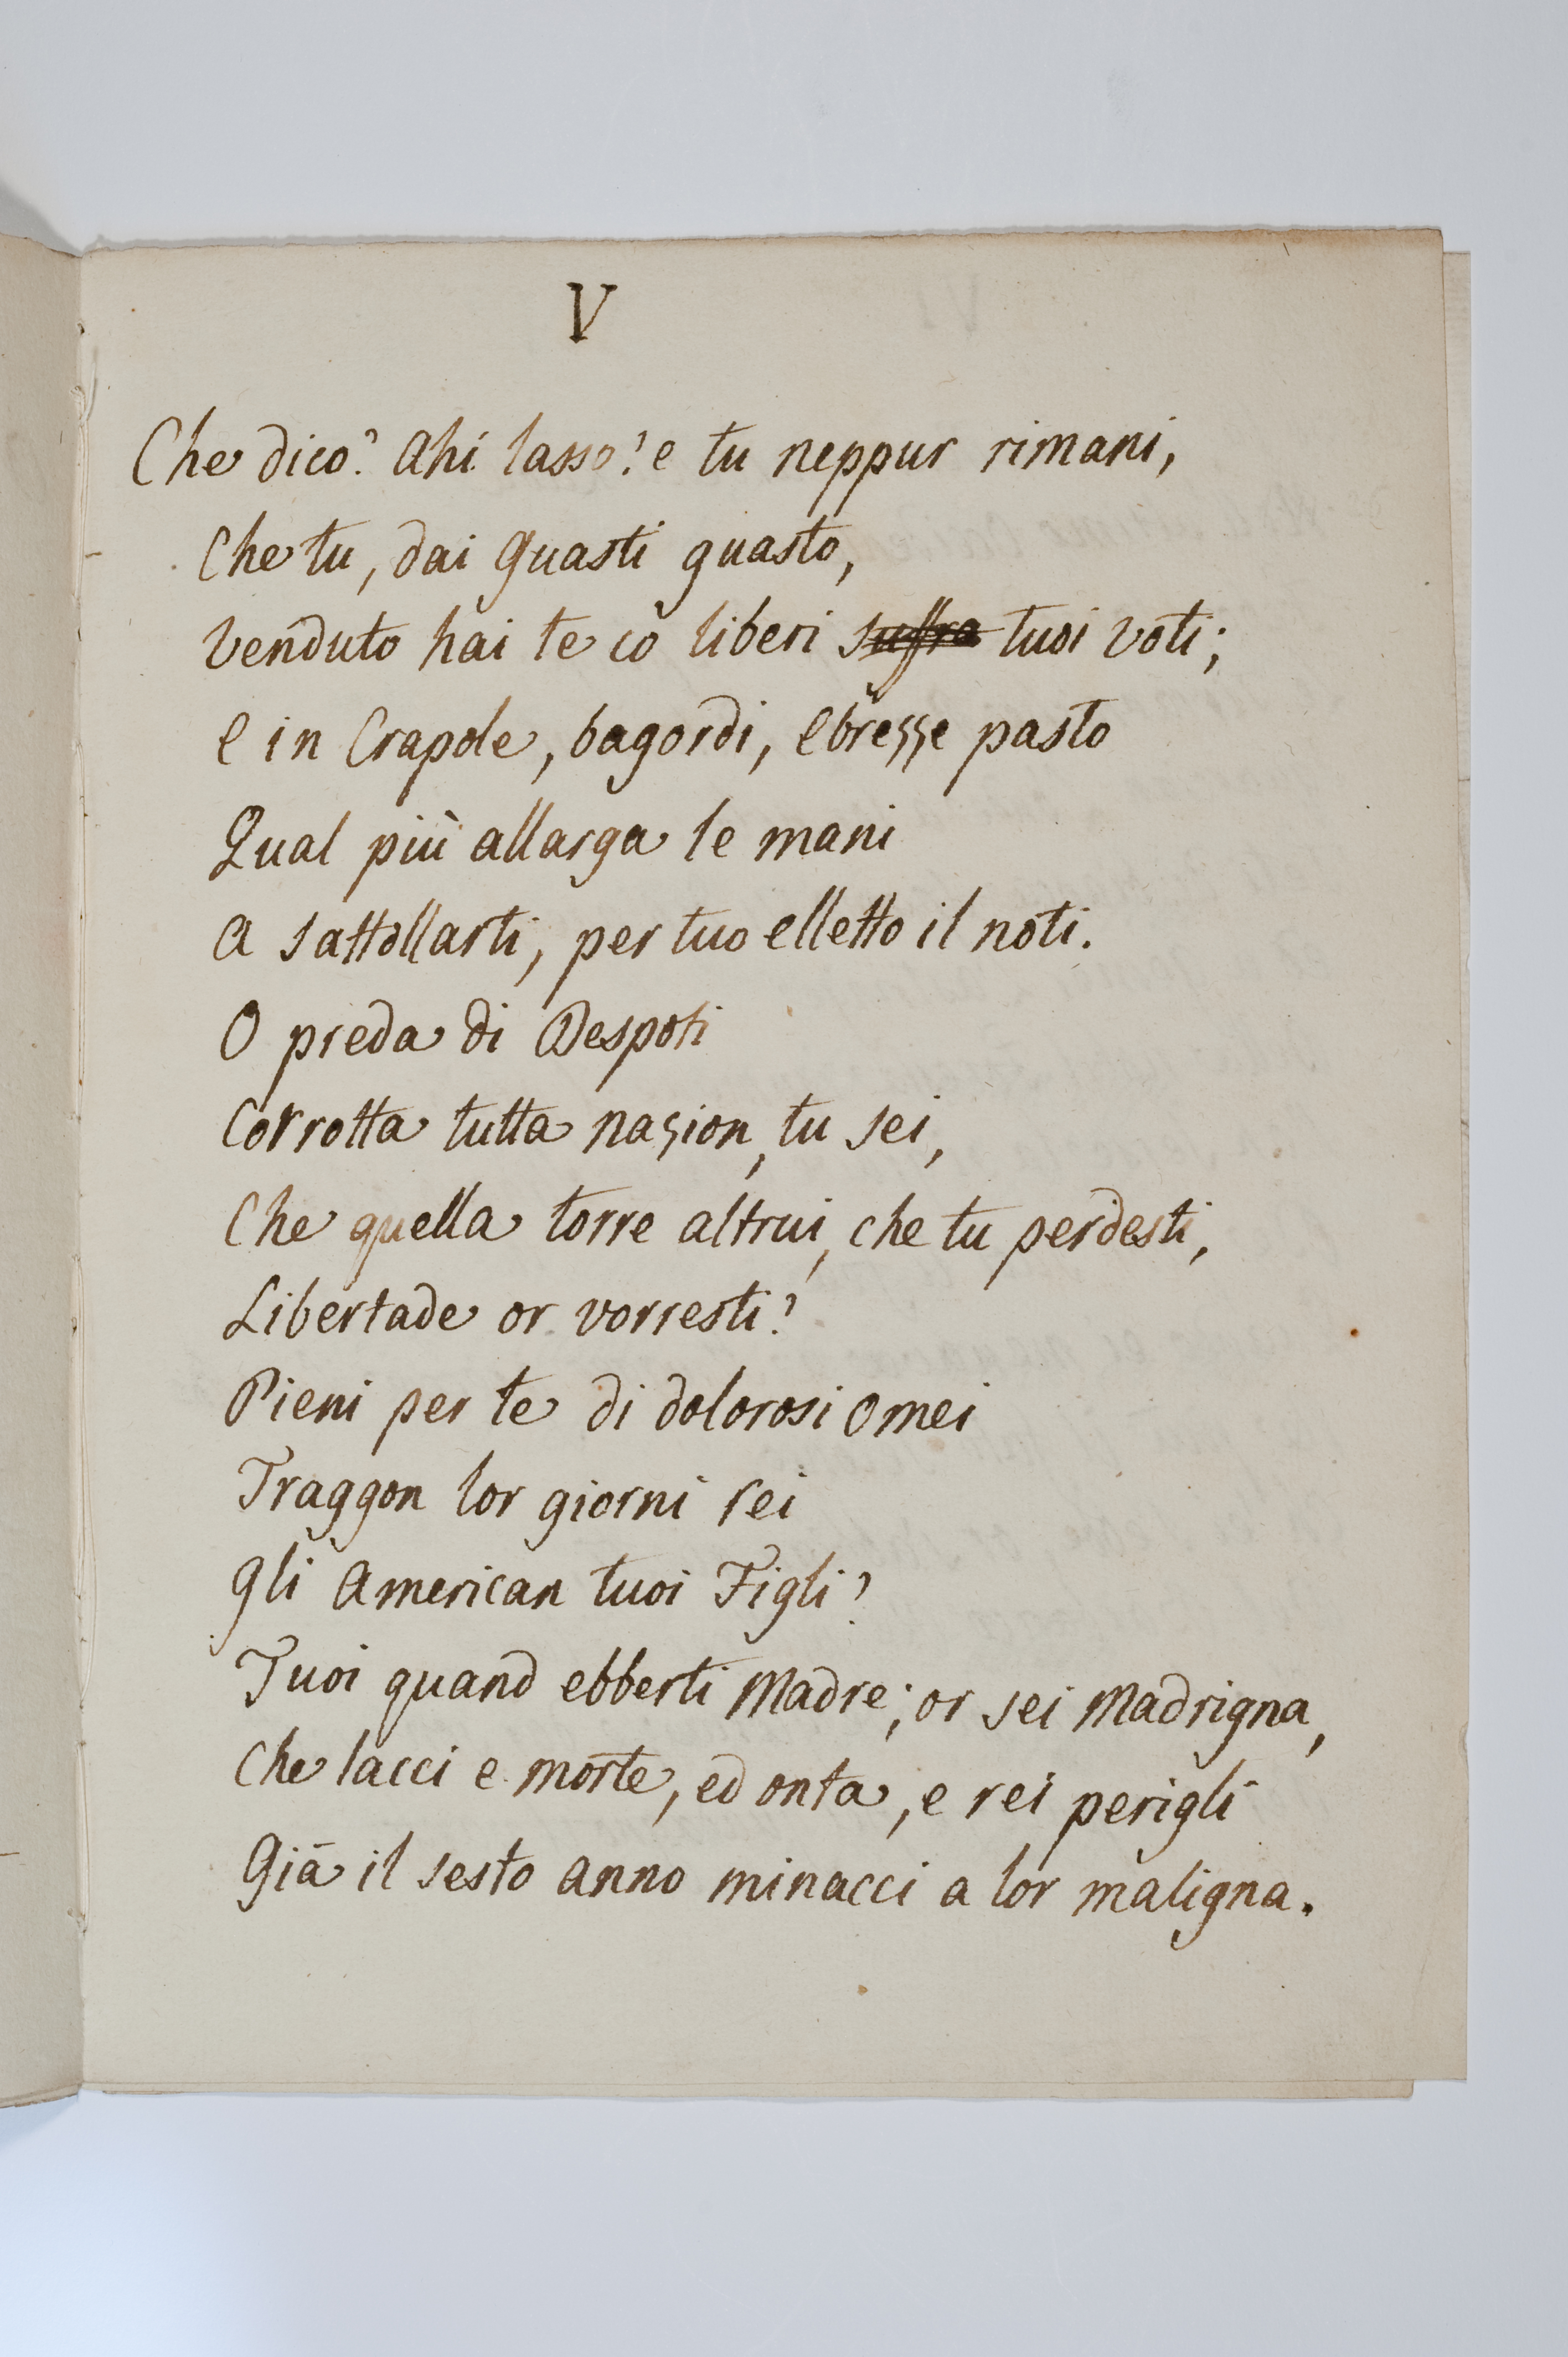 V
Che dico? Ahi lasso! e tu neppur rimani,
Che tu, dai Guasti guasto,
Venduto hai te co liberi suffra tuoi voti;
E in Crapole, bagordi, Ebrezze pasto
Qual più allarga le mani
A sattollarti, per tuo elletto il noti.
O preda di Despoti
Corrotta tutta nazion, tu sei,
Che quella torre altrui, che tu perdesti,
Libertade or vorresti?
Pieni per te di dolorosi omei
Traggon lor giorni rei
Gli American tuoi Figli?
Tuoi quand ebberti Madre; or sei Madrigna,
Che lacci e morte, ed onta, e rei perigli
Già il sesto anno minacci a lor maligna.